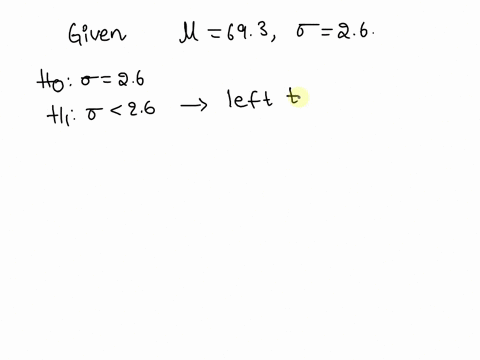 Given μ = 69.3, σ = 2.6.
H0: σ = 2.6
H1: σ < 2.6 → left t